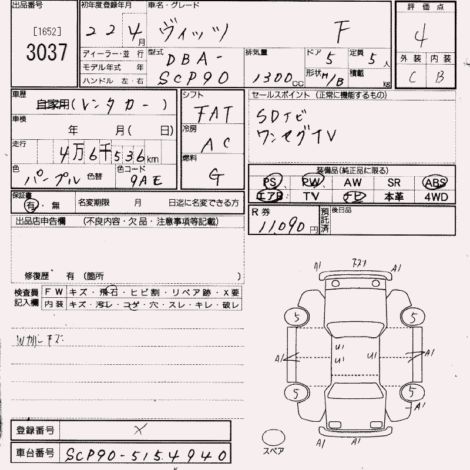 出品番号
[1652]
3037
初年度登録年月
22 4月
車名・グレード
ヴィッツ F
評価点
4
ディーラー・並行
モデル年式 年
ハンドル 左・右
型式
DBA-
SCP90
排気量
1300cc
ドア
5
定員
5人
形状
H/B
積載
kg
外装 内装
C B
車歴
自家用(レンタカー)
車検
年 月(日)
走行
4万6千536km
色
パープル
色替
色コード
9AE
シフト
FAT
冷房
AC
燃料
G
セールスポイント (正常に機能するもの)
SDナビ
ワンセグTV
装備品(純正品に限る)
PS PW AW SR ABS
エアB TV ナビ 本革 4WD
保証書
有・無
名変期限 月 日迄に名変できる方
R券
11,090円
預託済
後日品
出品店申告欄 (不良内容・欠品・注意事項等記載)
修復歴 有(箇所 )
検査員
記入欄
FW キズ・飛石・ヒビ割・リペア跡・X要
内装 キズ・汚レ・コゲ・穴・スレ・キレ・破レ
Wガリ キズ
A1 A1
5 5
A1 U1 U1 U1 A1 A1
5 5
A1
A1
スペア
登録番号
車台番号
SCP90-5154940